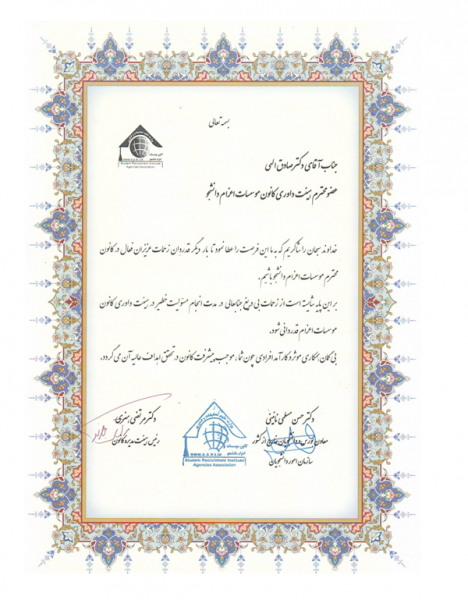 بسمه تعالی
کانون موسسات
اعزام دانشجو
www.s.a.n.i.r
Student Recruitment Institute
Agencies Association
جناب آقای دکتر صادق الهی
عضو محترم هیئت داوری کانون موسسات اعزام دانشجو
خداوند سبحان را شاکریم که به ما این فرصت را عطا نمود تا بار دیگر قدردان زحمات عزیزان فعال در کانون
محترم موسسات اعزام دانشجو باشیم.
بر این پایه شایسته است از زحمات بی دریغ جنابعالی در مدت انجام مسئولیت خطیر در هیئت داوری کانون
موسسات اعزام قدردانی شود.
بی گمان همکاری موثر و کارآمد افرادی چون شما، موجب پیشرفت کانون در تحقق اهداف عالیه آن می گردد.
دکتر حسن مسلمی نائینی
معاون بورس و دانشجویان خارج از کشور
سازمان امور دانشجویان
کانون موسسات
اعزام دانشجو
Student Recruitment Institute
Agencies Association
دکتر مرتضی
رئیس هیئت مدیره کانون